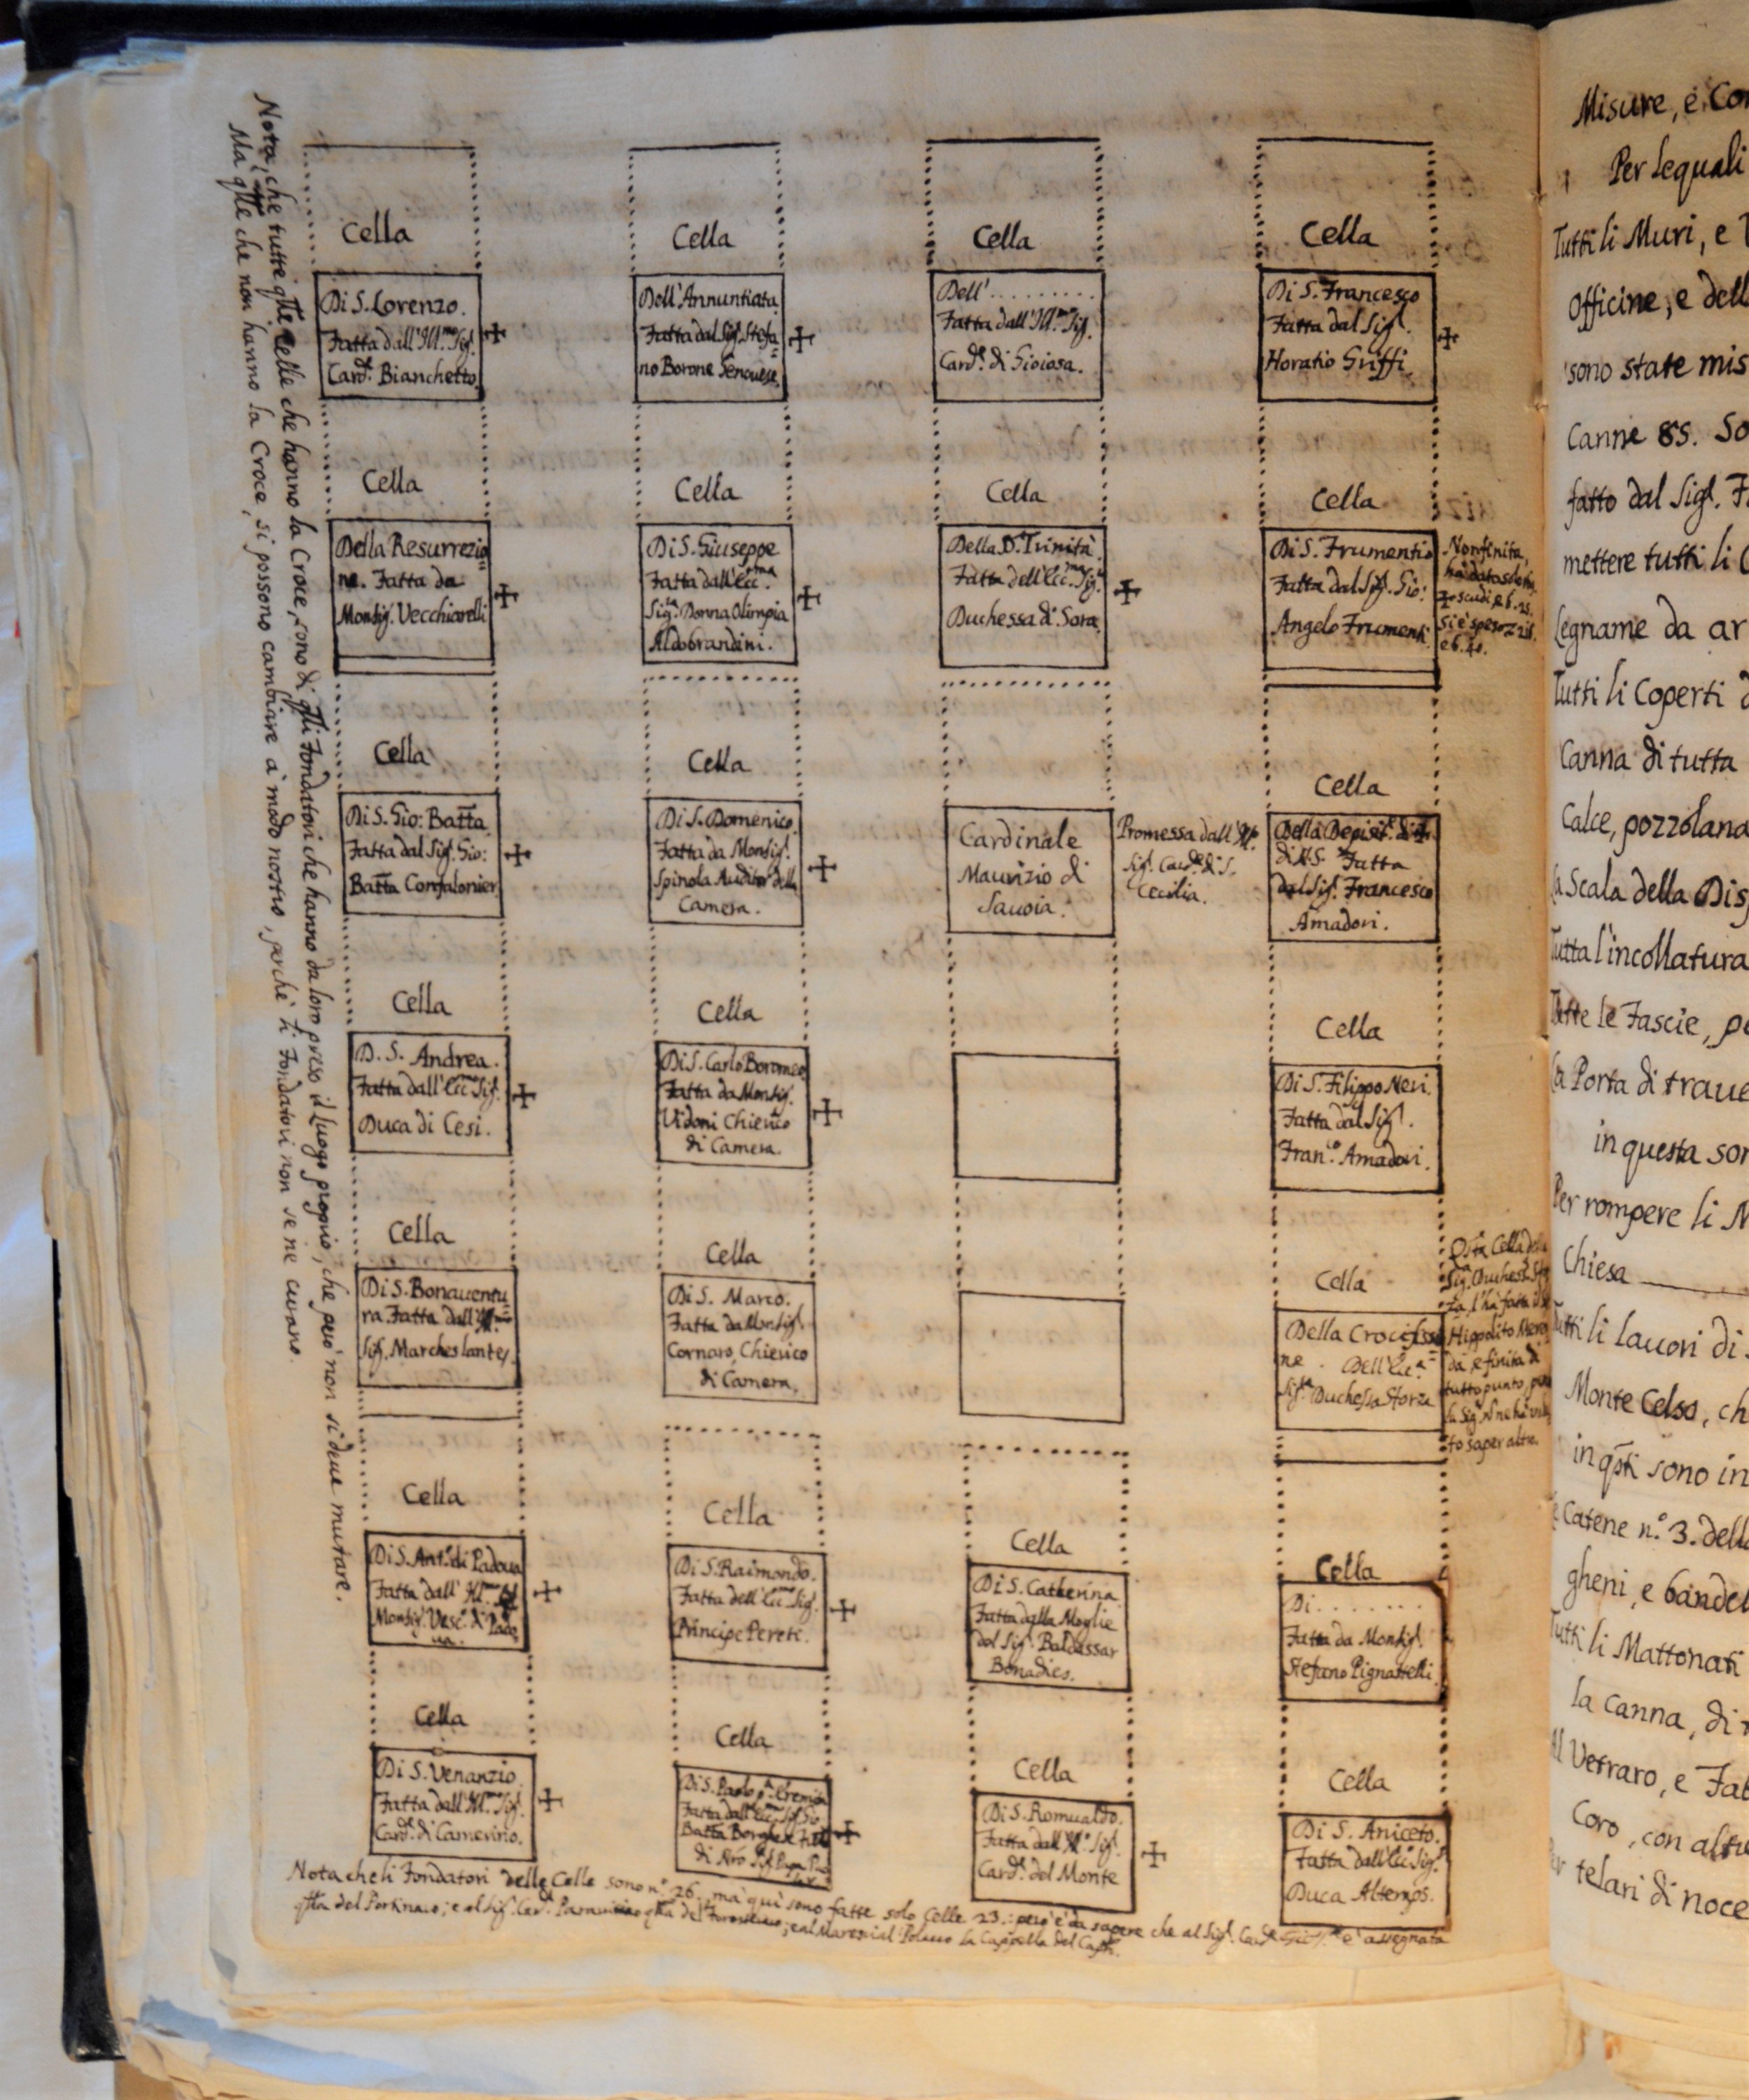 Nota, che tutte qlle Celle che hanno la Croce, sono di qlli Fondatori che hanno da loro preso il luogo proprio, che però non si deue mutare.
Ma qlle che non hanno la Croce, si possono cambiare à modo nostro, perche li Fondatori non se ne curano.
Cella
Di S. Lorenzo.
Fatta dall'Ill.mo Sig.
Card.e Bianchetto.
+
Cella
Della Resurrezio=
ne. Fatta da
Monsig. Vecchiarelli
+
Cella
Di S. Gio: Batta
Fatta dal Sig. Gio:
Batta Confalonier
+
Cella
D. S. Andrea.
Fatta dall'Ecc.mo Sig.
Duca di Cesi.
+
Cella
Di S. Bonauentu=
ra. Fatta dall'
Sig. Marches
Cella
Di S. Ant.o di Padoua
Fatta dall' Ill.mo
Monsig. Vesc.o di Pado
ua.
+
Cella
Di S. Venanzio.
Fatta dall'Ill.mo Sig.
Card.e di Camerino.
+
Cella
Dell'Annuntiata.
Fatta dal Sig. Stefa=
no Borone Genouese.
+
Cella
Di S. Giuseppe
Fatta dall'Ecc.ma
Sig.ra Donna Olimpia
Aldobrandini.
+
Cella
Di S. Domenico.
Fatta da Monsig.
Spinola Auditor della
Camera.
+
Cella
Di S. Carlo Boromeo
Fatta da Monsig.
Vidoni Chierico
di Camera.
+
Cella
Di S. Marco.
Fatta da Monsig.
Cornaro, Chierico
di Camera.
Cella
Di S. Raimondo.
Fatta dell'Ecc.mo Sig.
Principe Perett.
+
Cella
Di S. Paolo p.o Eremita
Fatta dall'Ecc.mo Sig. Gio
Batta Borghese
di
+
Cella
Dell' .........
Fatta dall'Ill.mo Sig.
Card.e di Gioiosa.
Cella
Della S. Trinità.
Fatta dell'Ecc.ma Sig.ra
Duchessa di Sora.
+
Cardinale
Maurizio di
Sauoia.
Promessa dall'
Sig. Card.e di S.
Cecilia.
Cella
Di S. Catherina.
Fatta dalla Moglie
del Sig. Baldassar
Bonadies.
Cella
Di S. Romualdo.
Fatta dall' Sig.
Card.e del Monte
+
Cella
Di S. Francesco
Fatta dal Sig.
Horatio Griffi.
+
Cella
Di S. Frumentio
Fatta dal Sig. Gio:
Angelo Frumenti.
Non finita,
hà data solo
scudi e b. 25.
Si è speso
e b. 40.
Cella
Della
di N.S. Fatta
dal Sig. Francesco
Amadori.
Cella
Di S. Filippo Neri.
Fatta dal Sig.
Fran.co Amadori.
Cella
Della Crocifissio
ne. Dell'Ecc.a
Sig.ra Duchessa Sforza
Qsta Cella della
Sig.ra Duchessa
za, l'hà fatta
Hippolito
da, e finita di
tutto punto,
la Sig.ra
to saper altro.
Cella
Di .......
Fatta da Monsig.
Stefano Pignattelli
Cella
Di S. Aniceto.
Fatta dall'Ecc.mo Sig.
Duca Altemps.
Nota che li Fondatori delle Celle sono n.o 26., mà quì sono fatte solo Celle 23.: però è da sapere che al Sig. Card. è assegnata
qlla del Portinaro; e al Sig. Card. qlla del; e al Marescial la Cappella del
Misure, e Con
Per lequali
Tutti li Muri, e
Officine, e dell
sono state mis
Canne 85. So
fatto dal Sig. F
mettere tutti li C
Legname da ar
Tutti li Coperti d
Canna di tutta
Calce, pozzolana
La Scala della Dis
Tutta l'incollatura
Tutte le Fascie, pe
La Porta di traue
in questa son
Per rompere li M
Chiesa
Tutti li lauori di
Monte Celso, ch
in qsti sono in
Catene n.o 3. della
gheni, e bandel
Tutti li Mattonati
la canna, di
Al Verraro, e Fab
Coro, con altr
Per telari di noce